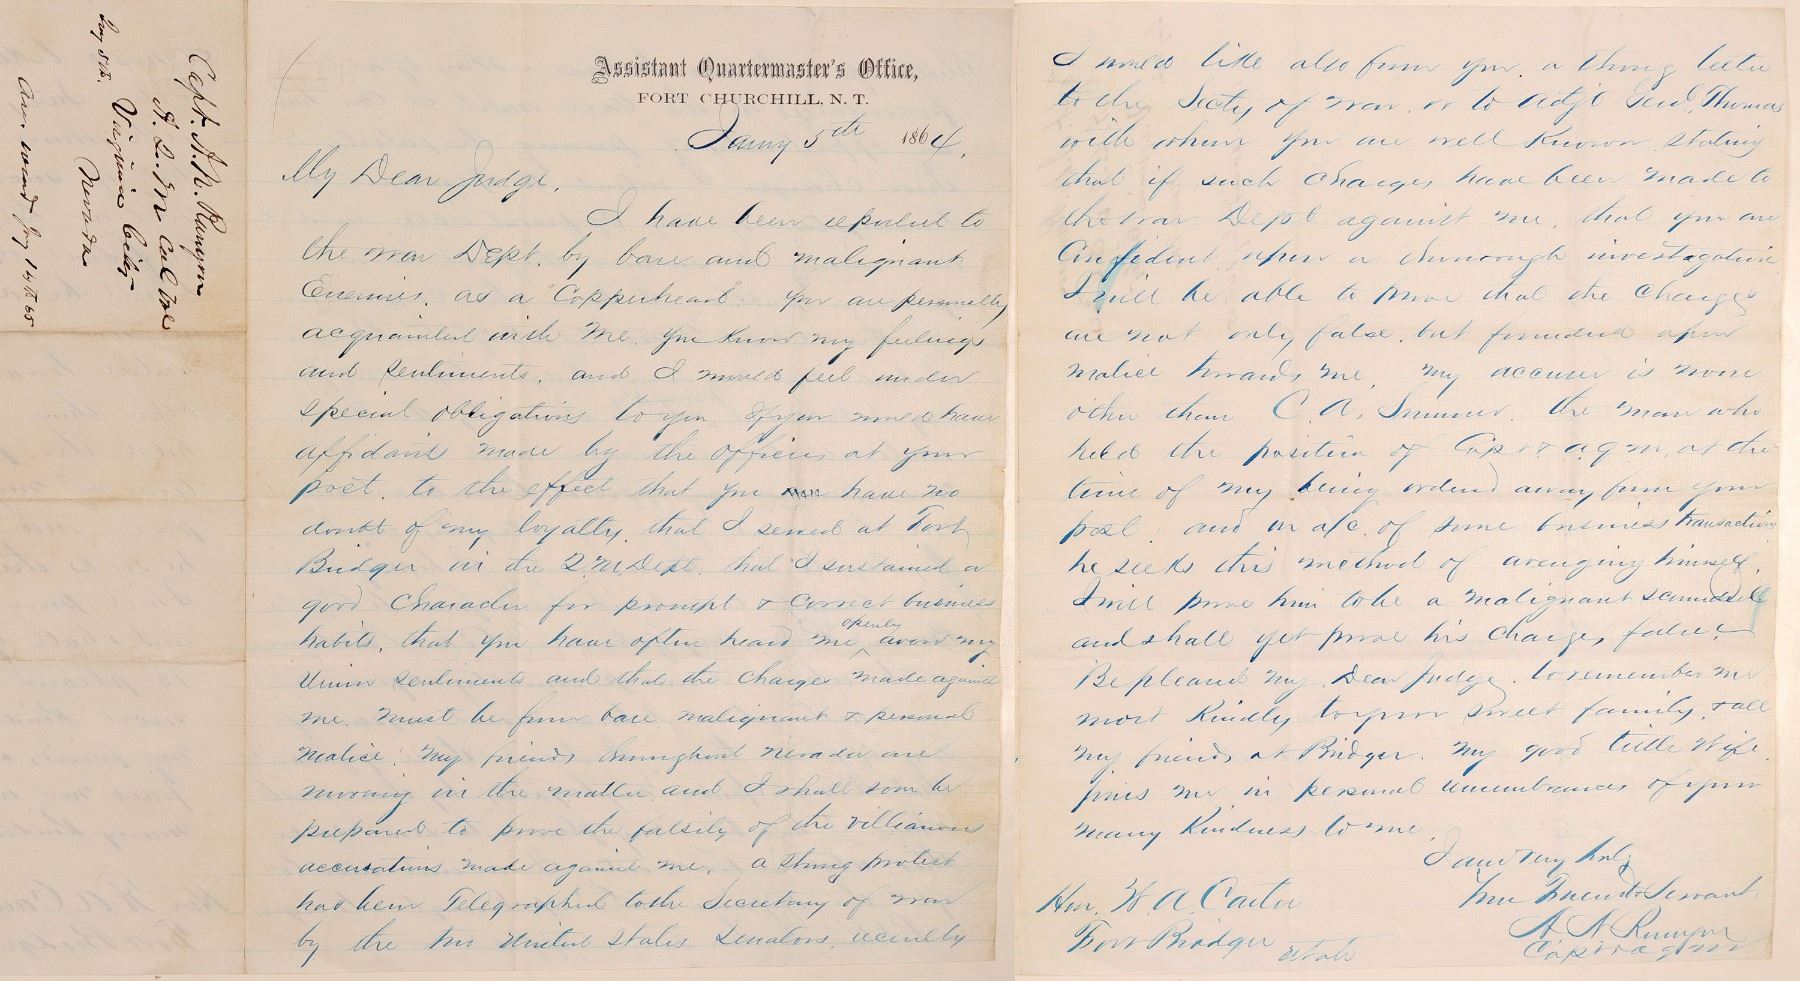 Capt. A. N. Runyon
A. Q. M. Col Vol
Virginia City
Nevada
Jay 5th.
Ans. Jay 14th 65
Assistant Quartermaster's Office,
FORT CHURCHILL, N. T.
Jany 5th 1864.
My Dear Judge,
I have been reported to
the war Dept. by base and malignant
Enemies, as a "Copperhead". you are personally
acquainted with me, you know my feelings
and sentiments, and I would feel under
special obligations to you if you would have
affidavits made by the officers at your
post, to the effect that you have no
doubt of my loyalty, that I served at Fort
Bridger in the Q. M. Dept. that I sustained a
good Character for prompt & correct business
habits, that you have often heard me openly avow my
Union sentiments and that the charges made against
me, must be from base malignant & personal
malice! my friends throughout Nevada are
moving in the matter and I shall soon be
prepared to prove the falsity of the villianous
accusations made against me. a strong protest
has been Telegraphed to the Secretary of war
by the two United States Senators, recently
I would like also from you, a strong letter
to the Secty of war, or to Adjt Genl. Thomas
with whom you are well known, stating
that if such charges have been made to
the war Dept against me, that you are
Confident upon a thorough investagation
I will be able to prove that the charges
are not only false, but founded upon
malice towards me, my accuser is none
other than C. A. Sumner, the man who
held the position of Capt & a. q m, at the
time of my being ordered away from your
post, and on a/c. of some business transaction
he seeks this method of avenging himself,
I will prove him to be a malignant scoundrell
and shall yet prove his charges, false.
Be pleased my Dear Judge, to remember me
most kindly to your sweet family, & all
my friends at Bridger. my good little wife
joins me in personal remembrances of your
many kindness to me,
I am my
True Friend & Servant
A N Runyon
Capt & a q m
Hon. W. A. Carter
Fort Bridger
Utah